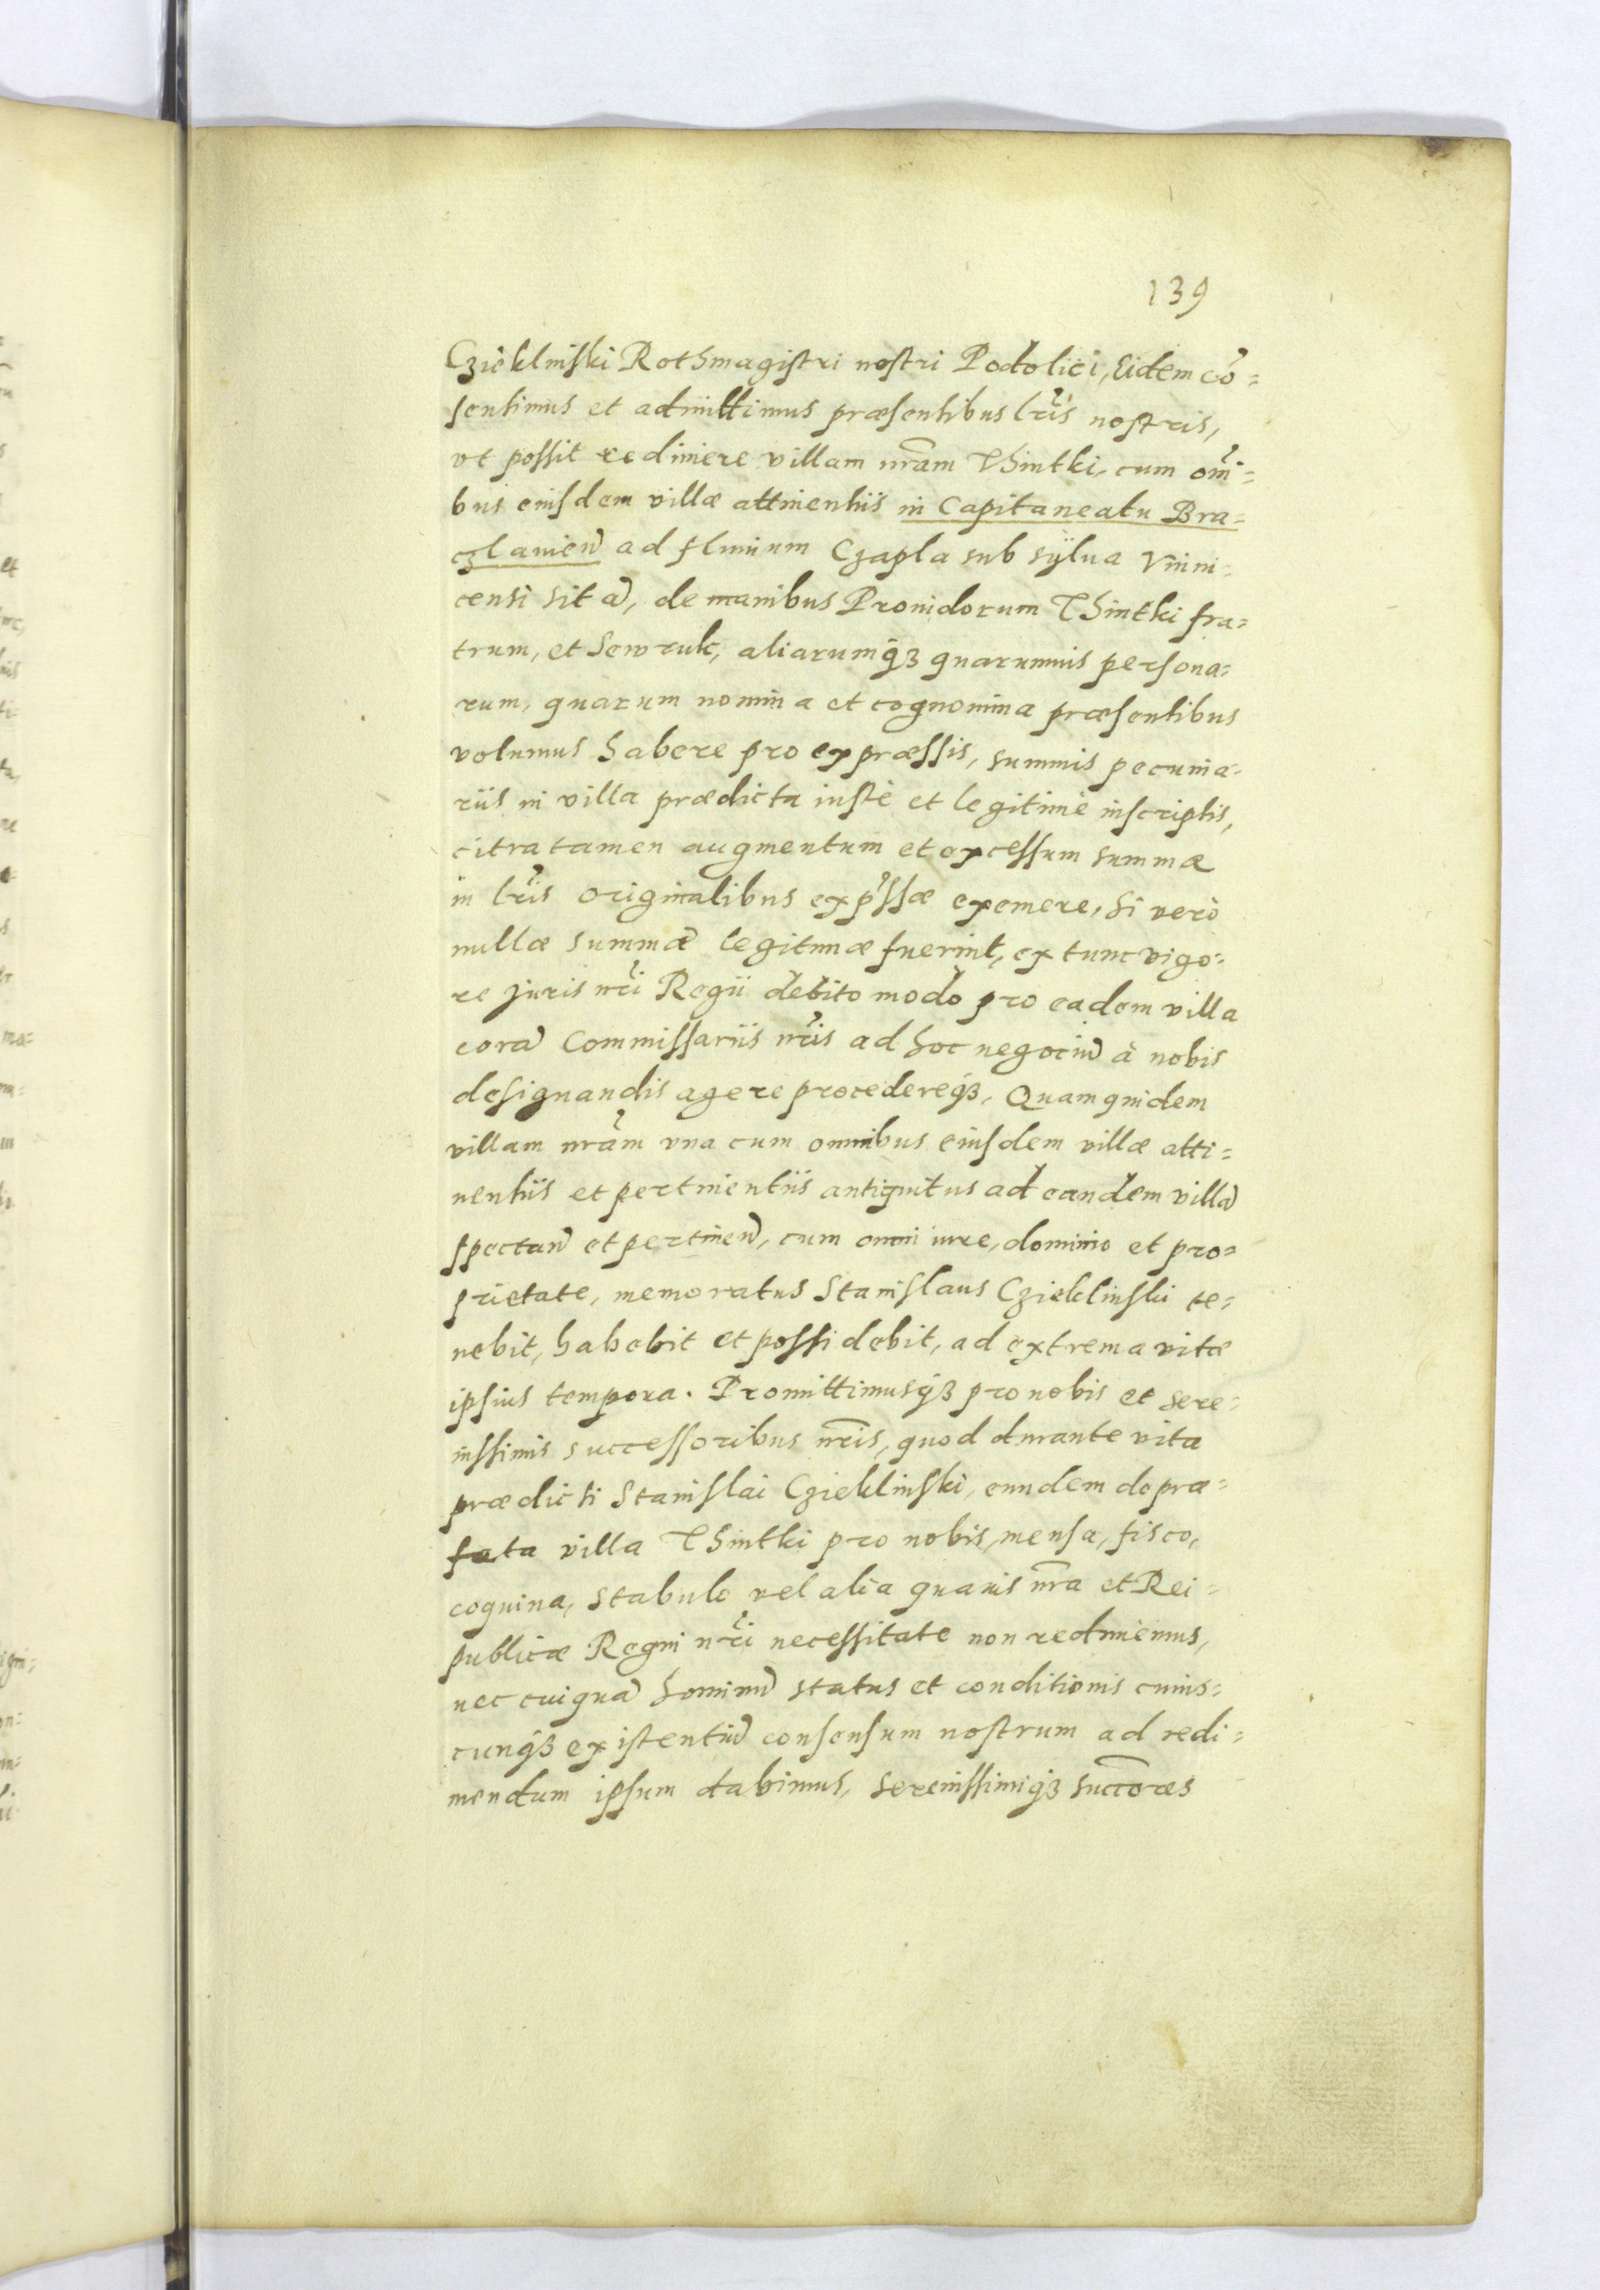 139
Cziekliński Rothmagistri nostri Podolici, Eidem cō=
sentimus et admittimus præsentibus lr̃is nostris,
vt possit redimere villam nr̃am Thintki, cum om̃i=
bus eiusdem villæ attinentiis in Capitaneatu Bra=
czlavień ad flumum Czapla sub sÿlua Vinni=
censi sitā, de manibus Prouidorum Thintki fra=
trum, et Sewruk, aliarumq₃ quarumuis persona=
rum, quarum nomina et cognomina præsentibus
volumus habere pro expræssis, summis pecunia=
riis in villa prædicta iustè et legitimè inscriptis,
citra tamen augmentum et excessum summæ
in lr̃is originalibus exp̃ssæ exemere, si verò
nullæ summæ legitimæ fuerint, ex tunc vigo=
re juris nr̃i Regii debito modo pro eadem villa
corā Commissariis nr̃is ad hoc negociū à nobis
designandis agere procedereq₃, Quamquidem
villam nr̃am vna cum omnibus eiusdem villæ atti=
nentiis et pertinentiis antiquitus ad eandem villā
spectań et pertineń, cum omni iure, dominio et pro=
prietate, memoratus Stanislaus Cziekliński te=
nebit, habebit et possidebit, ad extrema vitæ
ipsius tempora. Promittimusq₃ pro nobis et sere=
nissimis successoribus nr̃is, quod durante vita
prædicti Stanislai Cziekliński, eundem de præ=
fata villa Thintki pro nobis, mensa, fisco,
coquina, stabulo vel alia quauis nr̃a et Rei=
publicæ Regni nr̃i necessitate non redimemus,
nec cuiquā hominū status et conditionis cuius=
cunq₃ existentiū consensum nostrum ad redi=
mendum ipsum dabimus, serenissimiq₃ succ̃ores